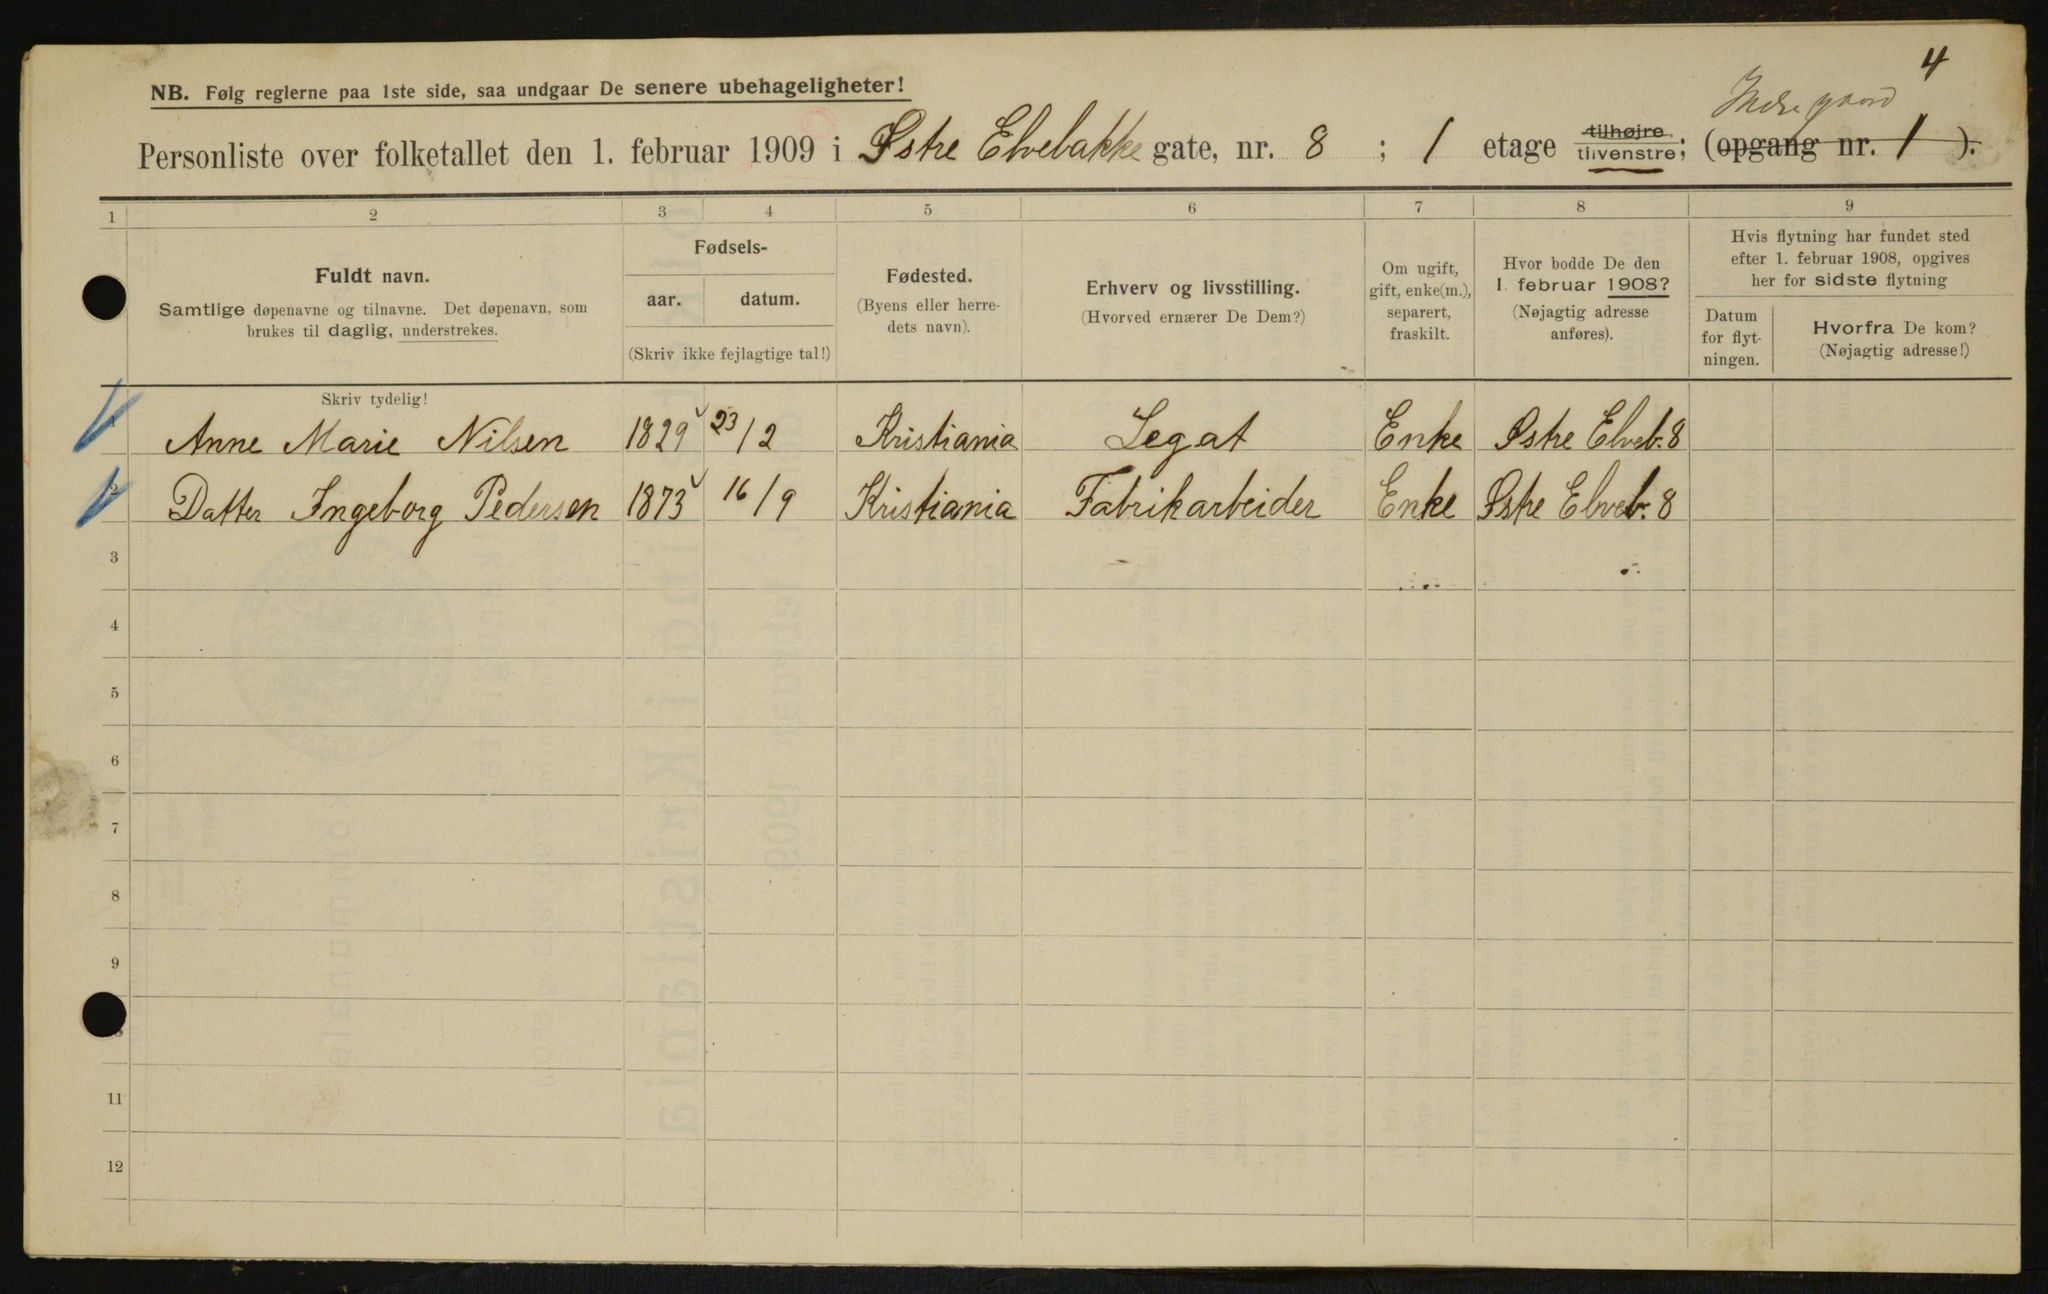 4
NB. Følg reglerne paa 1ste side, saa undgaar De senere ubehageligheter!
Indre gaard
Personliste over folketallet den 1. februar 1909 i Østre Elvebakke gate, nr. 8 ; 1 etage tilhøjre tilvenstre; (opgang nr. 1 ).
1 2 3 4 5 6 7 8 9
Fuldt navn.
Samtlige døpenavne og tilnavne. Det døpenavn, som
brukes til daglig, understrekes.
Fødsels-
aar. datum.
(Skriv ikke fejlagtige tal!)
Fødested.
(Byens eller herre-
dets navn).
Erhverv og livsstilling.
(Hvorved ernærer De Dem?)
Om ugift,
gift, enke(m.),
separert,
fraskilt.
Hvor bodde De den
1. februar 1908?
(Nøjagtig adresse
anføres).
Hvis flytning har fundet sted
efter 1. februar 1908, opgives
her for sidste flytning
Datum
for flyt-
ningen.
Hvorfra De kom?
(Nøjagtig adresse!)
Skriv tydelig!
Anne Marie Nilsen 1829 23/2 Kristiania Legat Enke Østre Elveb. 8
2 Datter Ingeborg Pedersen 1873 16/9 Kristiania Fabrikarbeider Enke Østre Elveb. 8
3
4
5
6
7
8
9
11
12